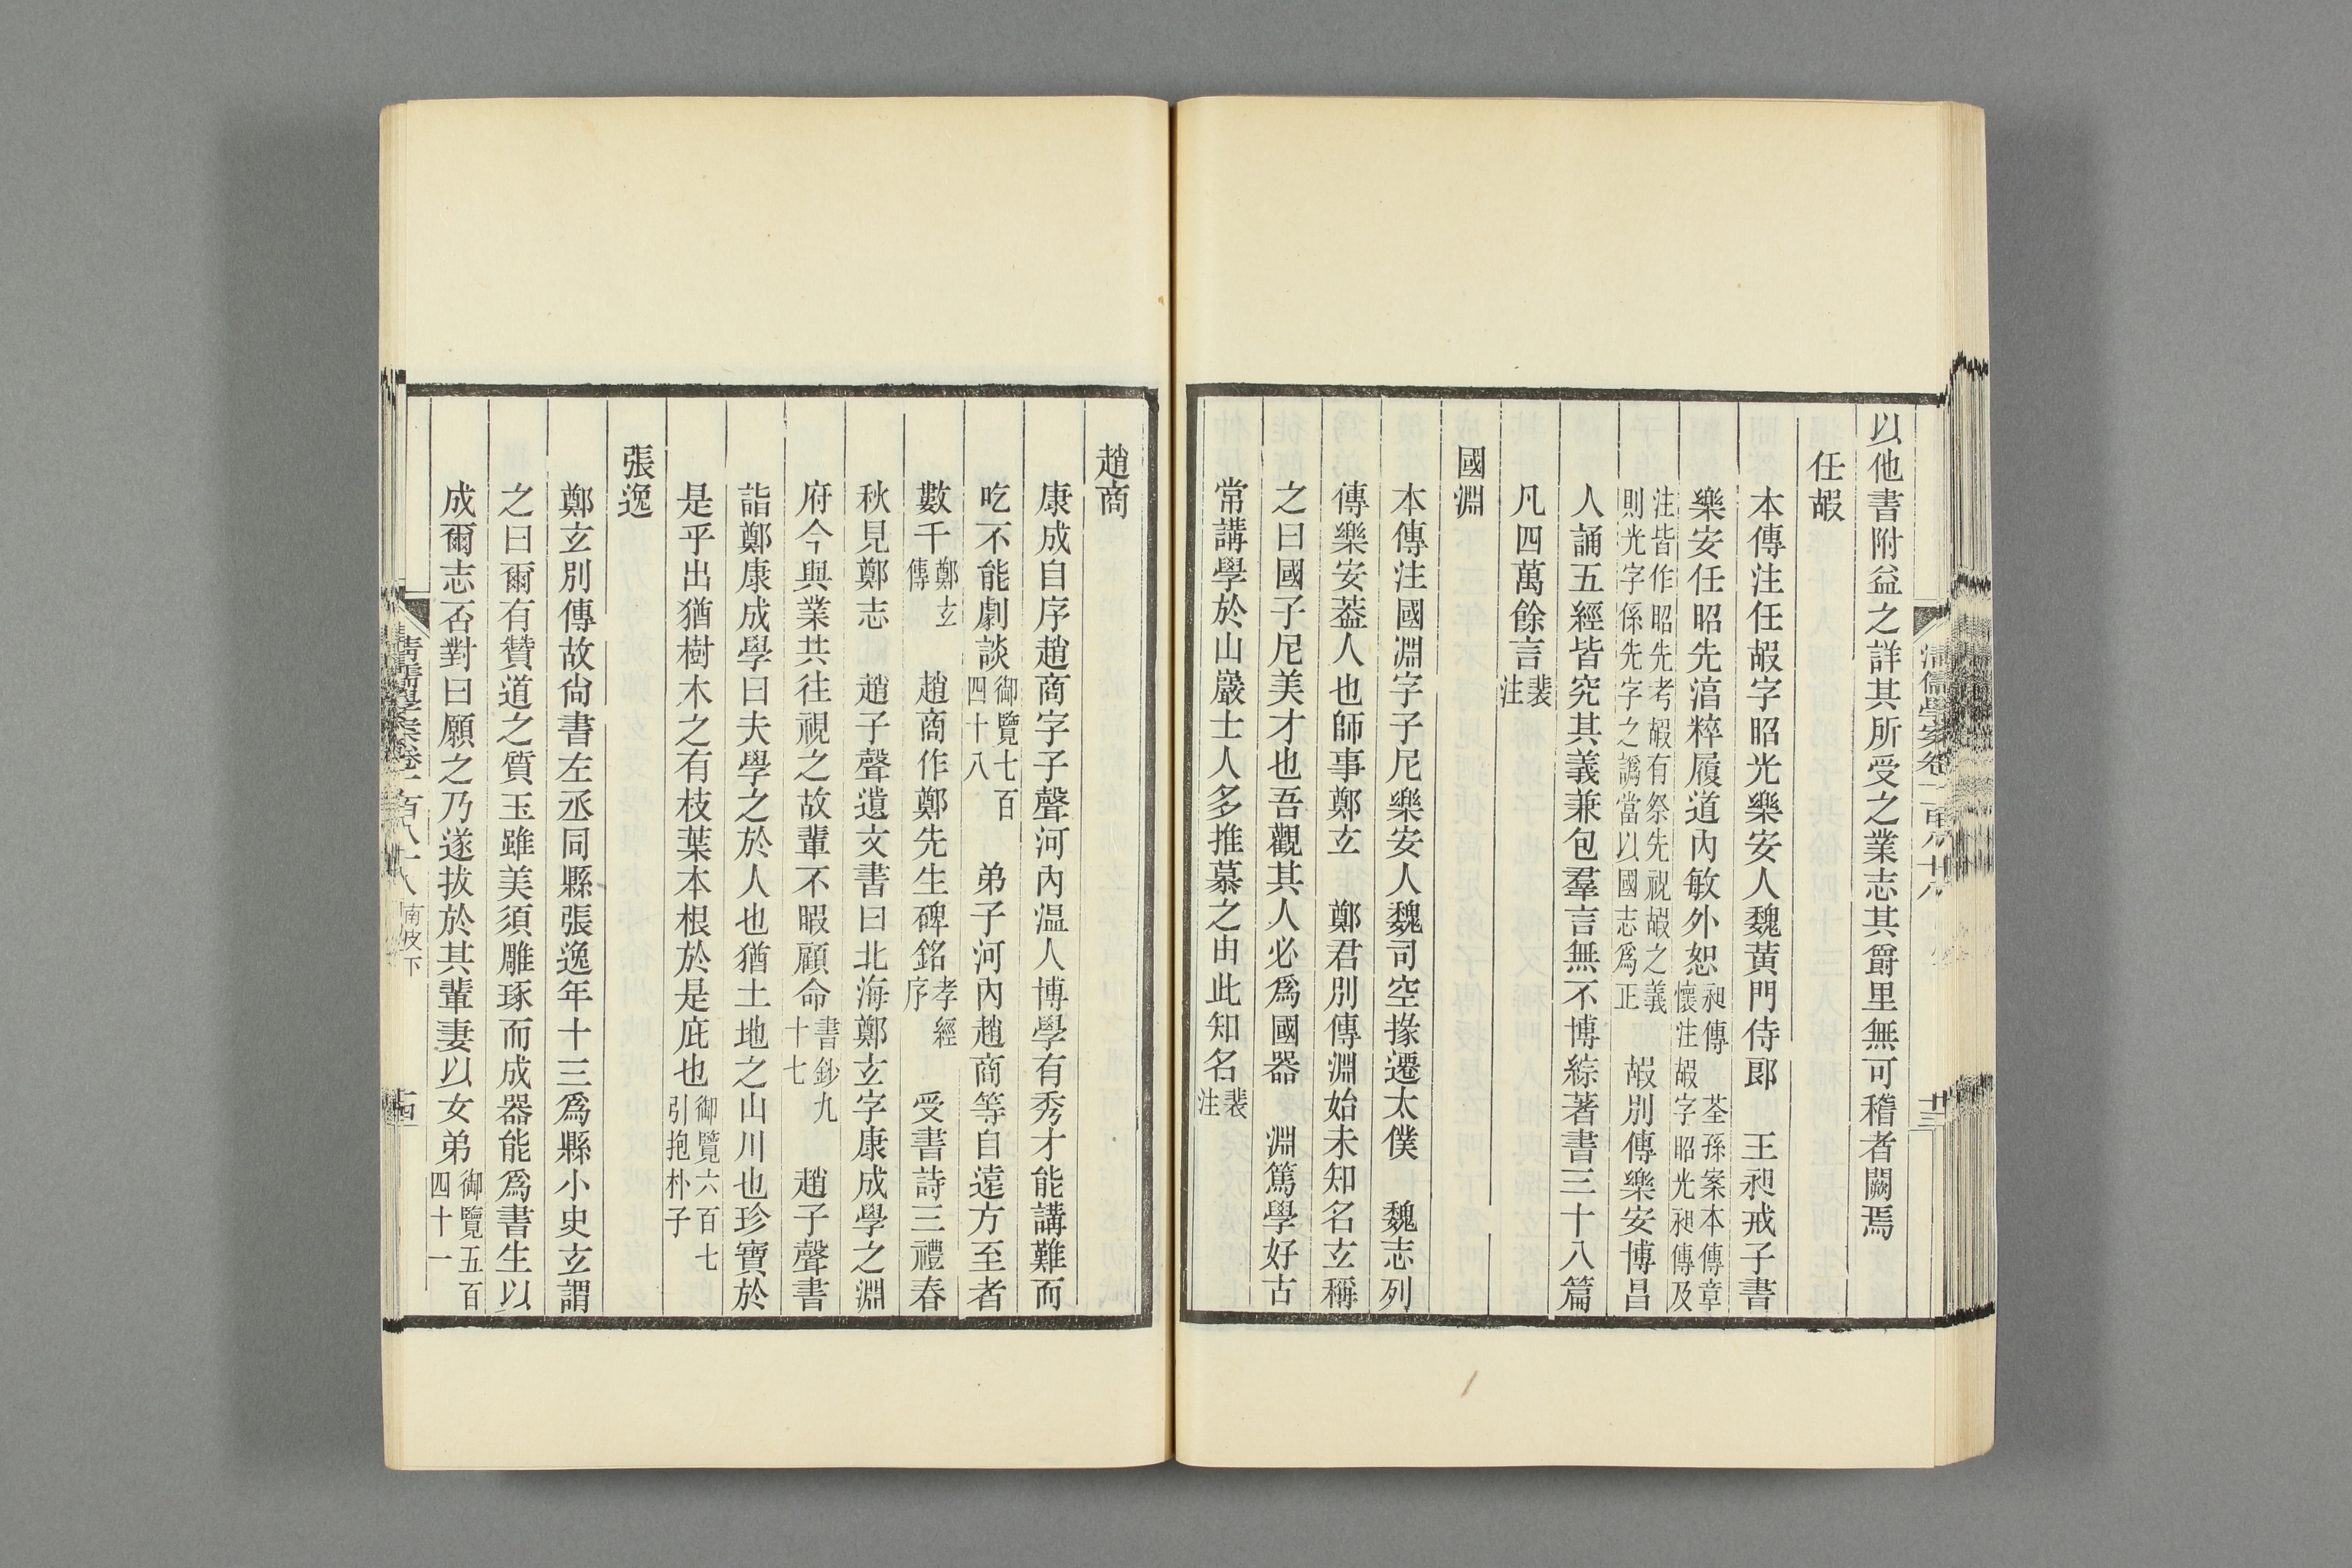 以他書附益之詳其所受之業志其爵里無可稽者闕焉
任嘏
本傳注任嘏字昭光樂安人魏黃門侍郎　王昶戒子書
樂安任昭先湻粹履道內敏外恕昶傳　荃孫案本傳章懷注嘏字昭光昶傳及
注皆作昭先考嘏有祭先祝嘏之義則光字係先字之譌當以國志爲正　嘏別傳樂安博昌
人誦五經皆究其義兼包羣言無不博綜著書三十八篇
凡四萬餘言裴注
國淵
本傳注國淵字子尼樂安人魏司空掾遷太僕　魏志列
傳樂安葢人也師事鄭玄　鄭君別傳淵始未知名玄稱
之曰國子尼美才也吾觀其人必爲國器　淵篤學好古
常講學於山巖士人多推慕之由此知名裴注
趙商
康成自序趙商字子聲河內温人博學有秀才能講難而
吃不能劇談御覽七百四十八　弟子河內趙商等自遠方至者
數千鄭玄傳　趙商作鄭先生碑銘孝經序　受書詩三禮春
秋見鄭志　趙子聲遺文書曰北海鄭玄字康成學之淵
府今與業共往視之故輩不暇顧命書鈔九十七　趙子聲書
詣鄭康成學曰夫學之於人也猶土地之山川也珍寶於
是乎出猶樹木之有枝葉本根於是庇也御覽六百七引抱朴子
張逸
鄭玄別傳故尙書左丞同縣張逸年十三爲縣小史玄謂
之曰爾有贊道之質玉雖美須雕琢而成器能爲書生以
成爾志否對曰願之乃遂拔於其輩妻以女弟御覽五百四十一